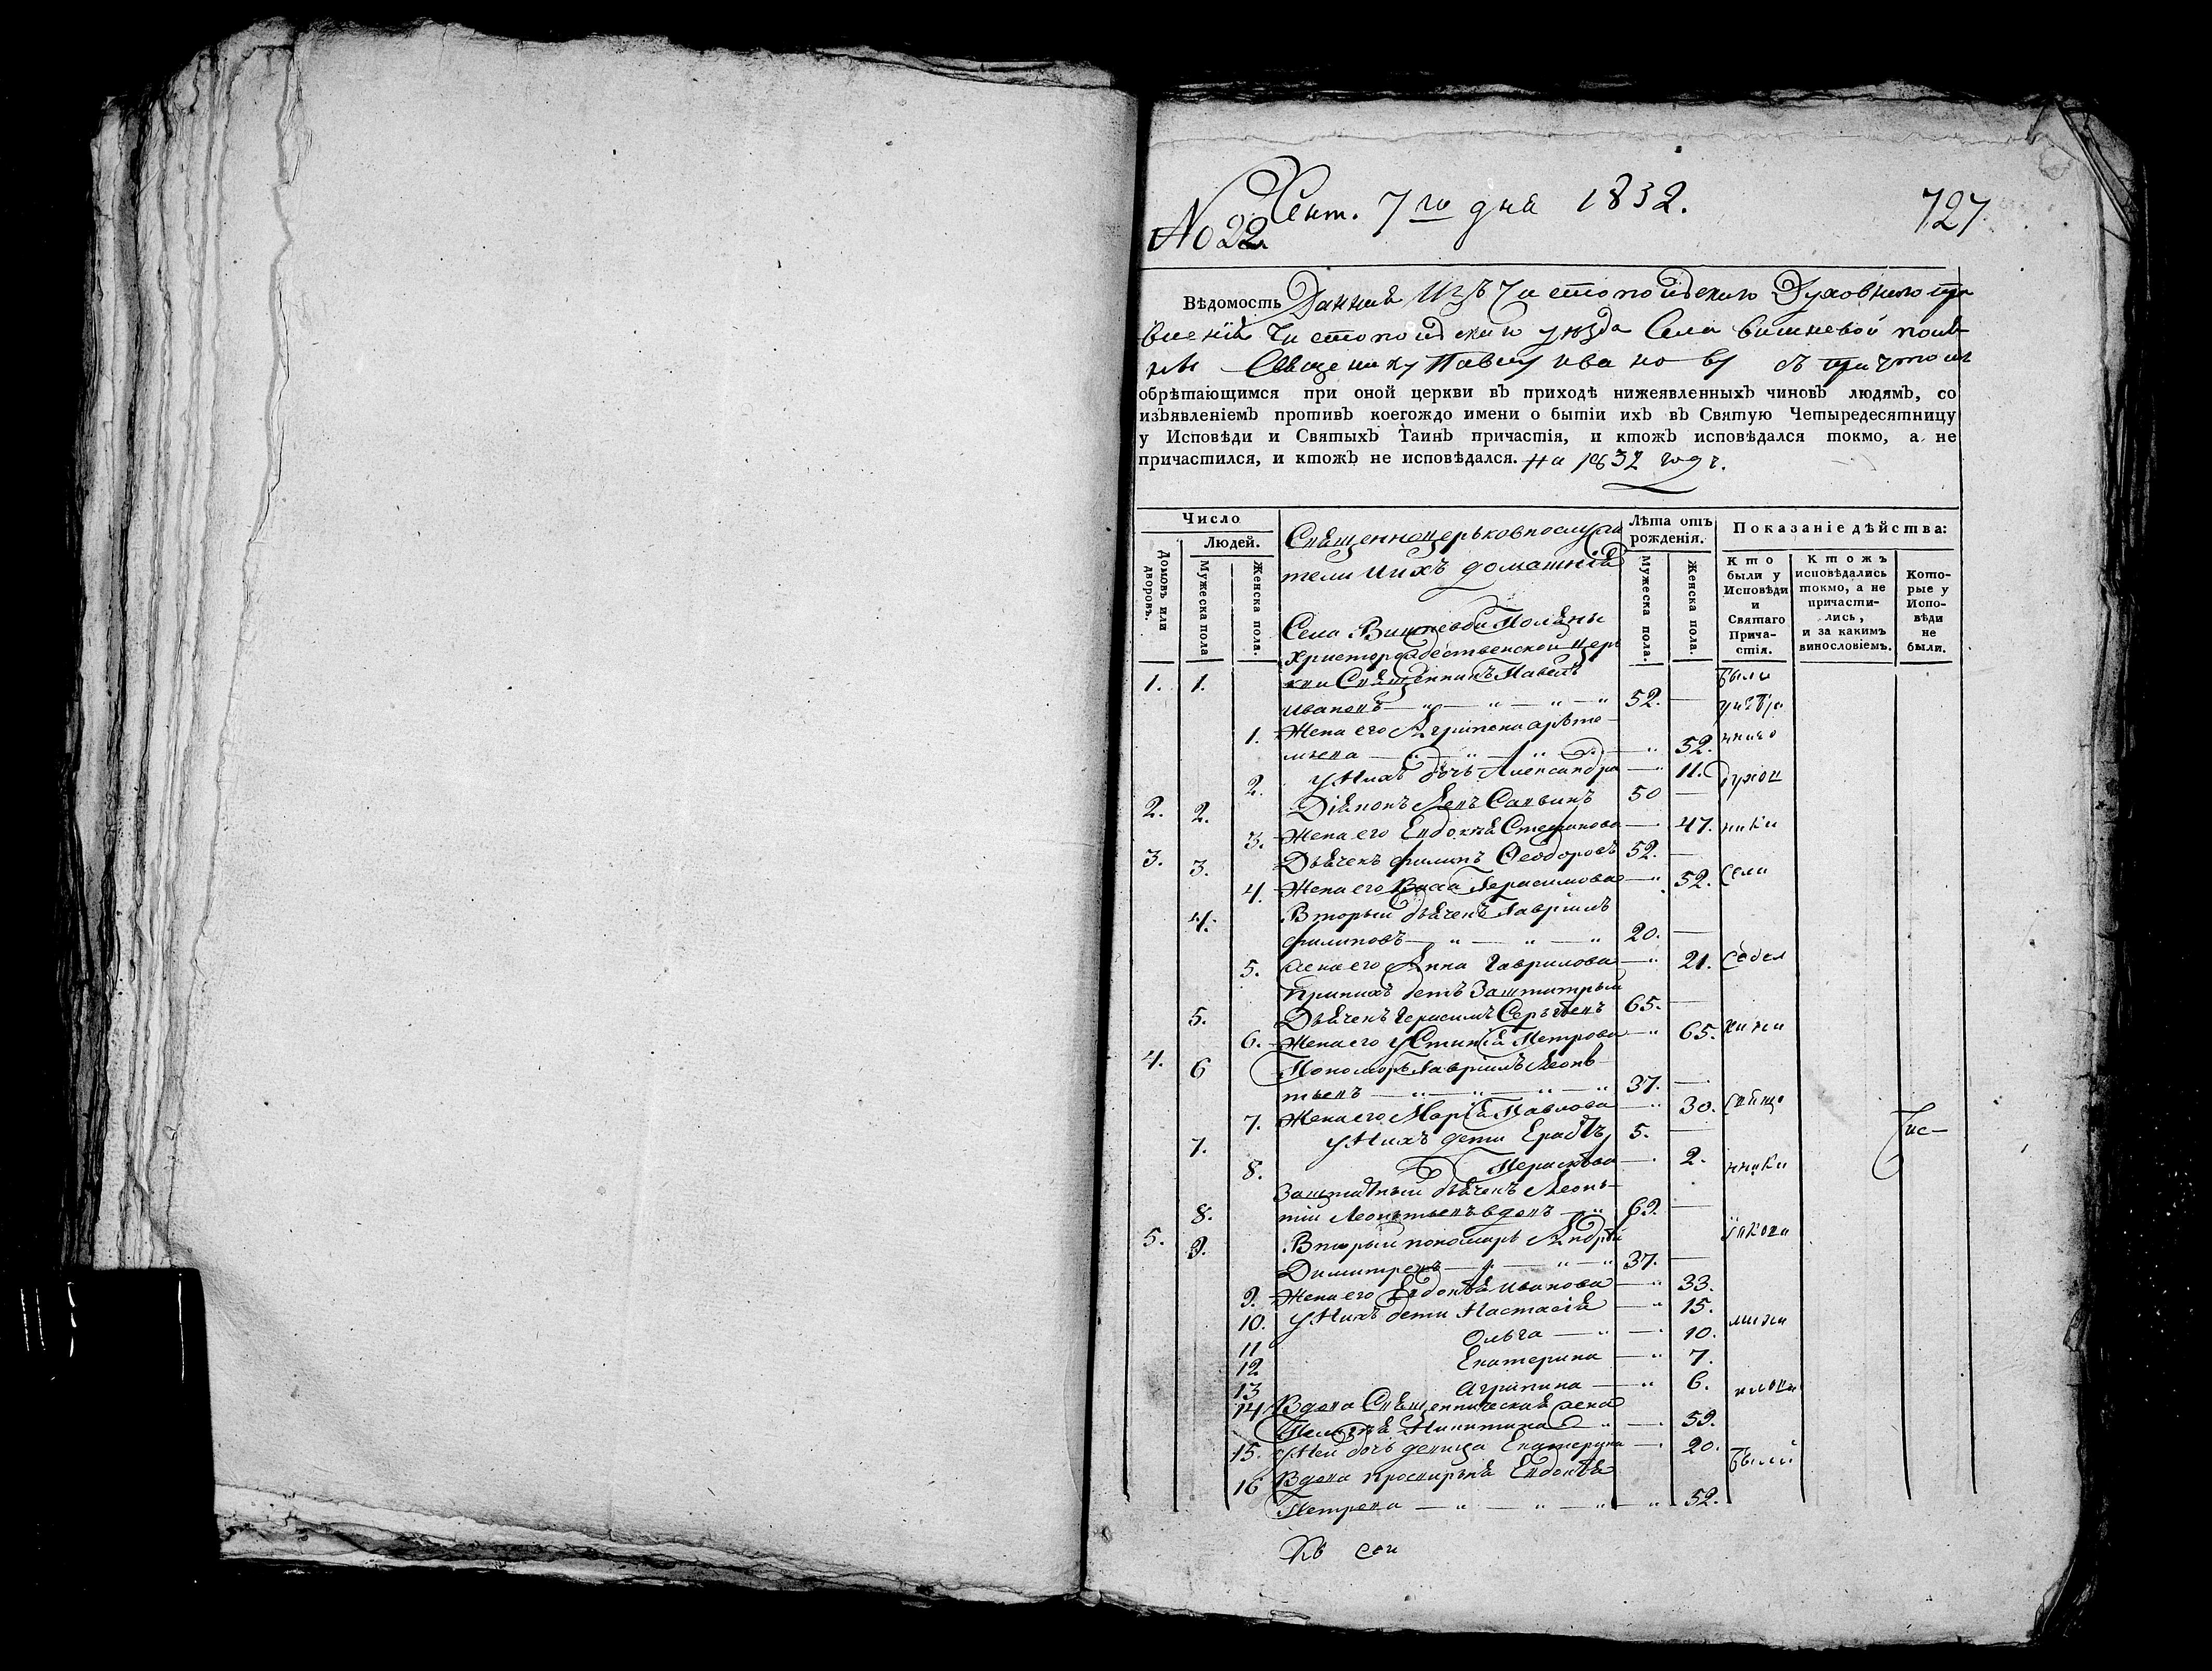 Сент. 7го дня 1832.
727
№ 22
Вѣдомость Данная Изъ Чистопойдского Духовного пра
вления Чистопойдского уѣзда Села вишневой поля
нѣ Священику Павлу ивано ву съ притчтом
обрѣтающимся при оной церкви въ приходѣ нижеявленныхъ чиновъ людямъ, со
изъявленіемъ противъ коегождо имени о бытіи ихъ въ Святую Четыредесятницу
у Исповѣди и Святыхъ Таинъ причастія, и ктожъ исповѣдался токмо, а не
причастился, и ктожъ не исповѣдался. На 1832 годъ.
Число
Людей.
Домовъ или дворовъ.
Мужеска пола
Женска пола.
Священноцерьковнослужи
тели Иихъ домашнія
Лѣта отъ рожденія.
Мужеска пола.
Женска пола.
Показаніе дѣйства:
Кто были у Исповѣди и Святаго Причастія.
Ктожъ исповѣдались токмо, а не причастились, и за какимъ винословіемъ.
Которые у Исповѣди не были.
Села Вишневой Поляны
Христорождественской цер
1. 1. кви Священникъ Павелъ были
Ивановъ — „ — „ — „ — „ 52. —
1. Жена его Агрипена артто
мьева — „ — „ — „ — „ 52.
2. У Нихъ дочь Александра — „ 11. духов
2. 2. Діяконъ Левъ Саввинъ 50 —
3. Жена его Евдокѣя Стефанова — 47. ники
3. 3. Дьячекъ Филипъ Феодоровъ 52. —
4. Жена его Васса Герасимова — „ 52. Села
4. Вторый дьячекъ Гавріилъ
Филиповъ — „ — „ — „ 20. —
5. жена его Анна Гаврилова — „ 21.
При нихъ детъ Заштатный
5. Дьячекъ Герасимъ Сергѣевъ 65. —
6. Жена его Устинія Петрова — „ 65.
4. 6 Пономоръ Гавріилъ Леонь
тьевъ — „ — „ — „ — „ 37. —
7. Жена его Марія Павлова — „ 30. Свяще
7. У Нихъ дети Ерастъ 5. — Лис-
8. Парасковья — 2. нники
Заштатный дьячекъ Леонь
8. тій Леонтьевъ вдовъ — „ 69. —
5. 9. Вторый пономарь Андрей
Димитревъ — „ — „ — „ 37. —
9. Жена его Евдокѣя Иванова — „ 33.
10. У Нихъ дети Настасія — „ 15.
11 Ольга — „ — 10.
12 Екатерина — „ 7.
13 Агрипина — „ 6.
14. Вдова Священническая жена
Пелагея Никитина — „ — 59.
15. У Ней дочь девица Екатерина — 20. были
16 Вдова просвирьня Евдокѣя
Петрова — „ — „ — „ — „ 52.